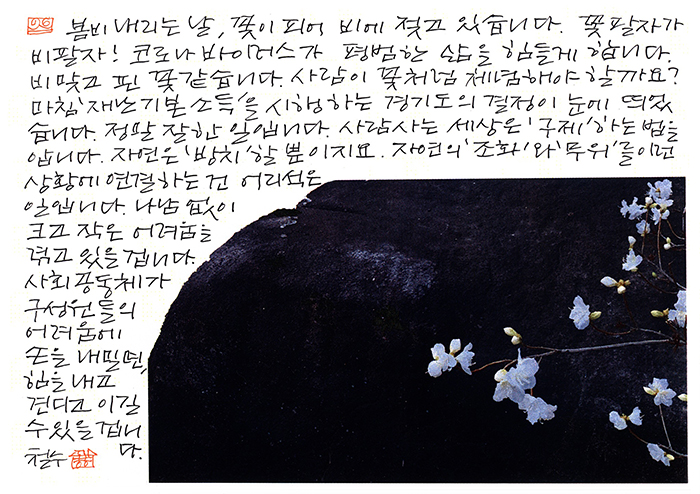 봄비 내리는 날, 꽃이 피어 비에 젖고 있습니다. 꽃팔자가
비팔자! 코로나 바이러스가 평범한 삶을 힘들게 합니다.
비맞고 핀 꽃같습니다. 사람이 꽃처럼 체념해야 할까요?
마침 '재난기본소득'을 시행하는 경기도의 결정이 눈에 띄었
습니다. 정말 잘한 일입니다. 사람사는 세상은 '구제'하는 법을
압니다. 자연은 '방치'할 뿐이지요. 자연의 '조화'와 '무위'를 이런
상황에 연결하는 건 어리석은
일입니다. 나남 없이
크고 작은 어려움을
겪고 있을 겁니다.
사회공동체가
구성원들의
어려움에
손을 내밀면,
힘을 내고
견디고 이길
수 있을 겁니
다.
철수